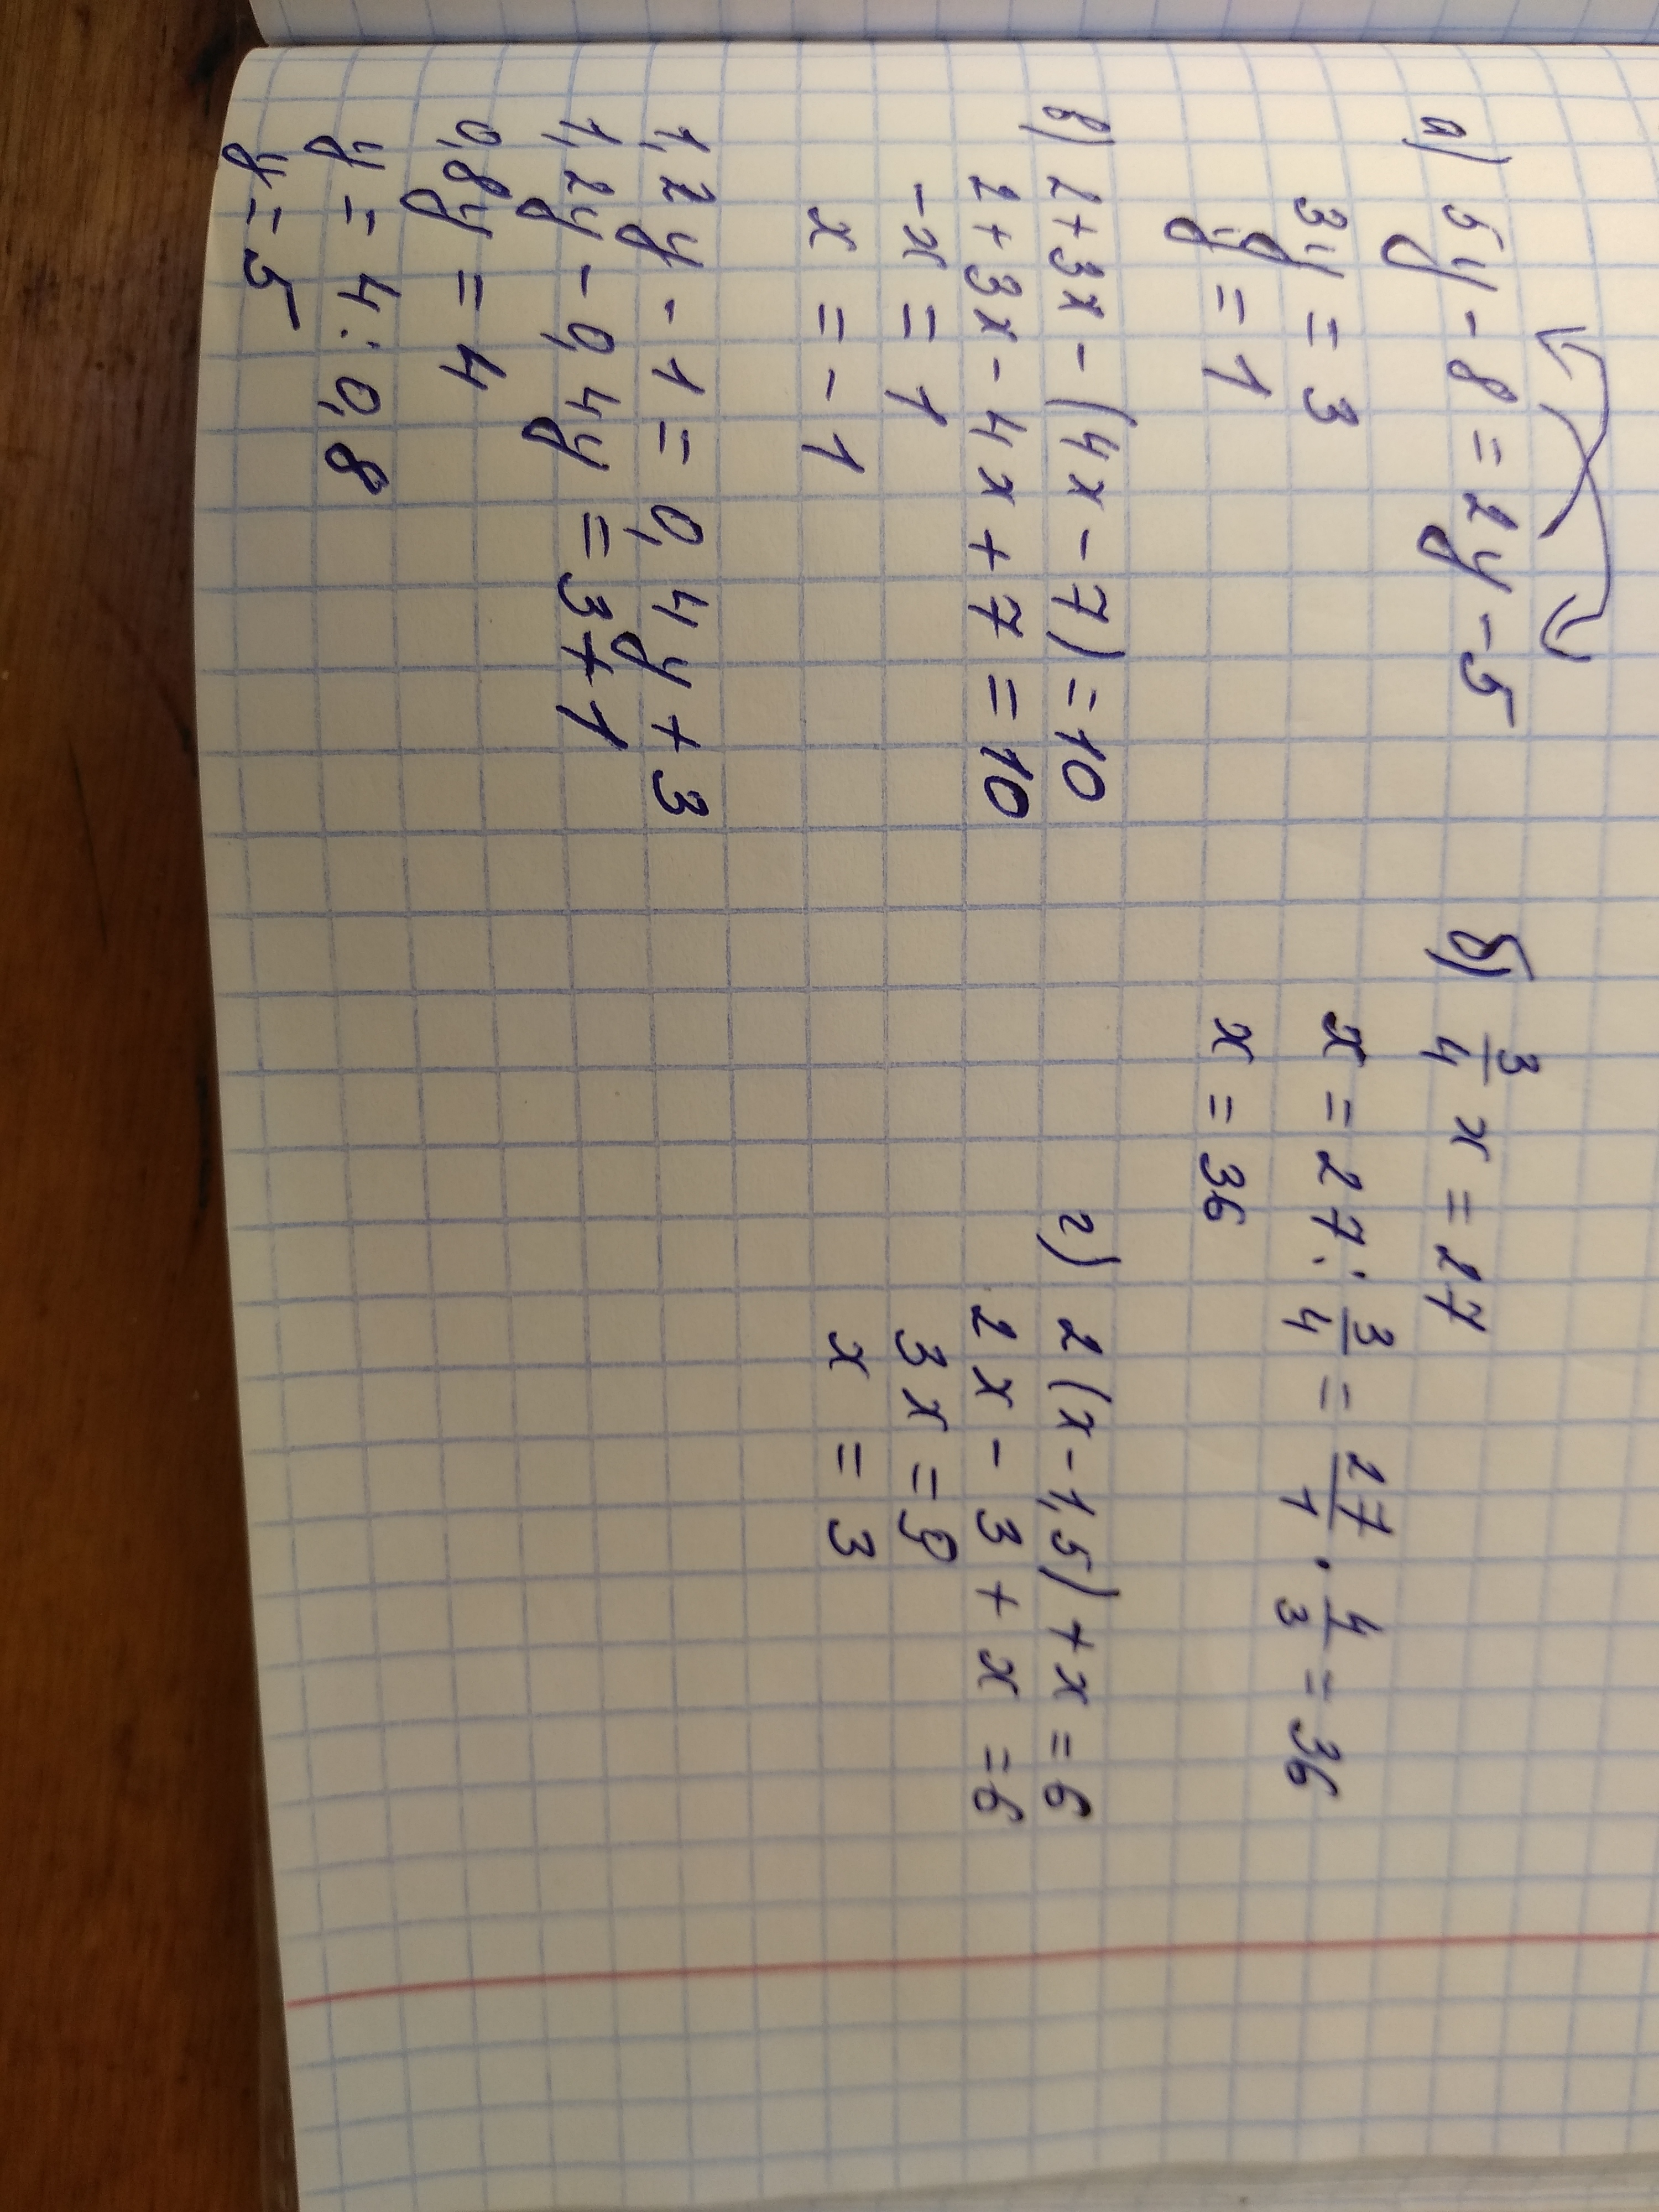 а) 5y - 8 = 2y - 5
3y = 3
y = 1
б) 3/4 x = 27
x = 27 : 3/4 = 27/1 · 4/3 = 36
x = 36
в) 2+3x - (4x - 7) = 10
2 + 3x - 4x + 7 = 10
-x = 1
x = -1
г) 2(x - 1,5) + x = 6
2x - 3 + x = 6
3x = 9
x = 3
1,2y - 1 = 0,4y + 3
1,2y - 0,4y = 3 + 1
0,8y = 4
y = 4 : 0,8
y = 5